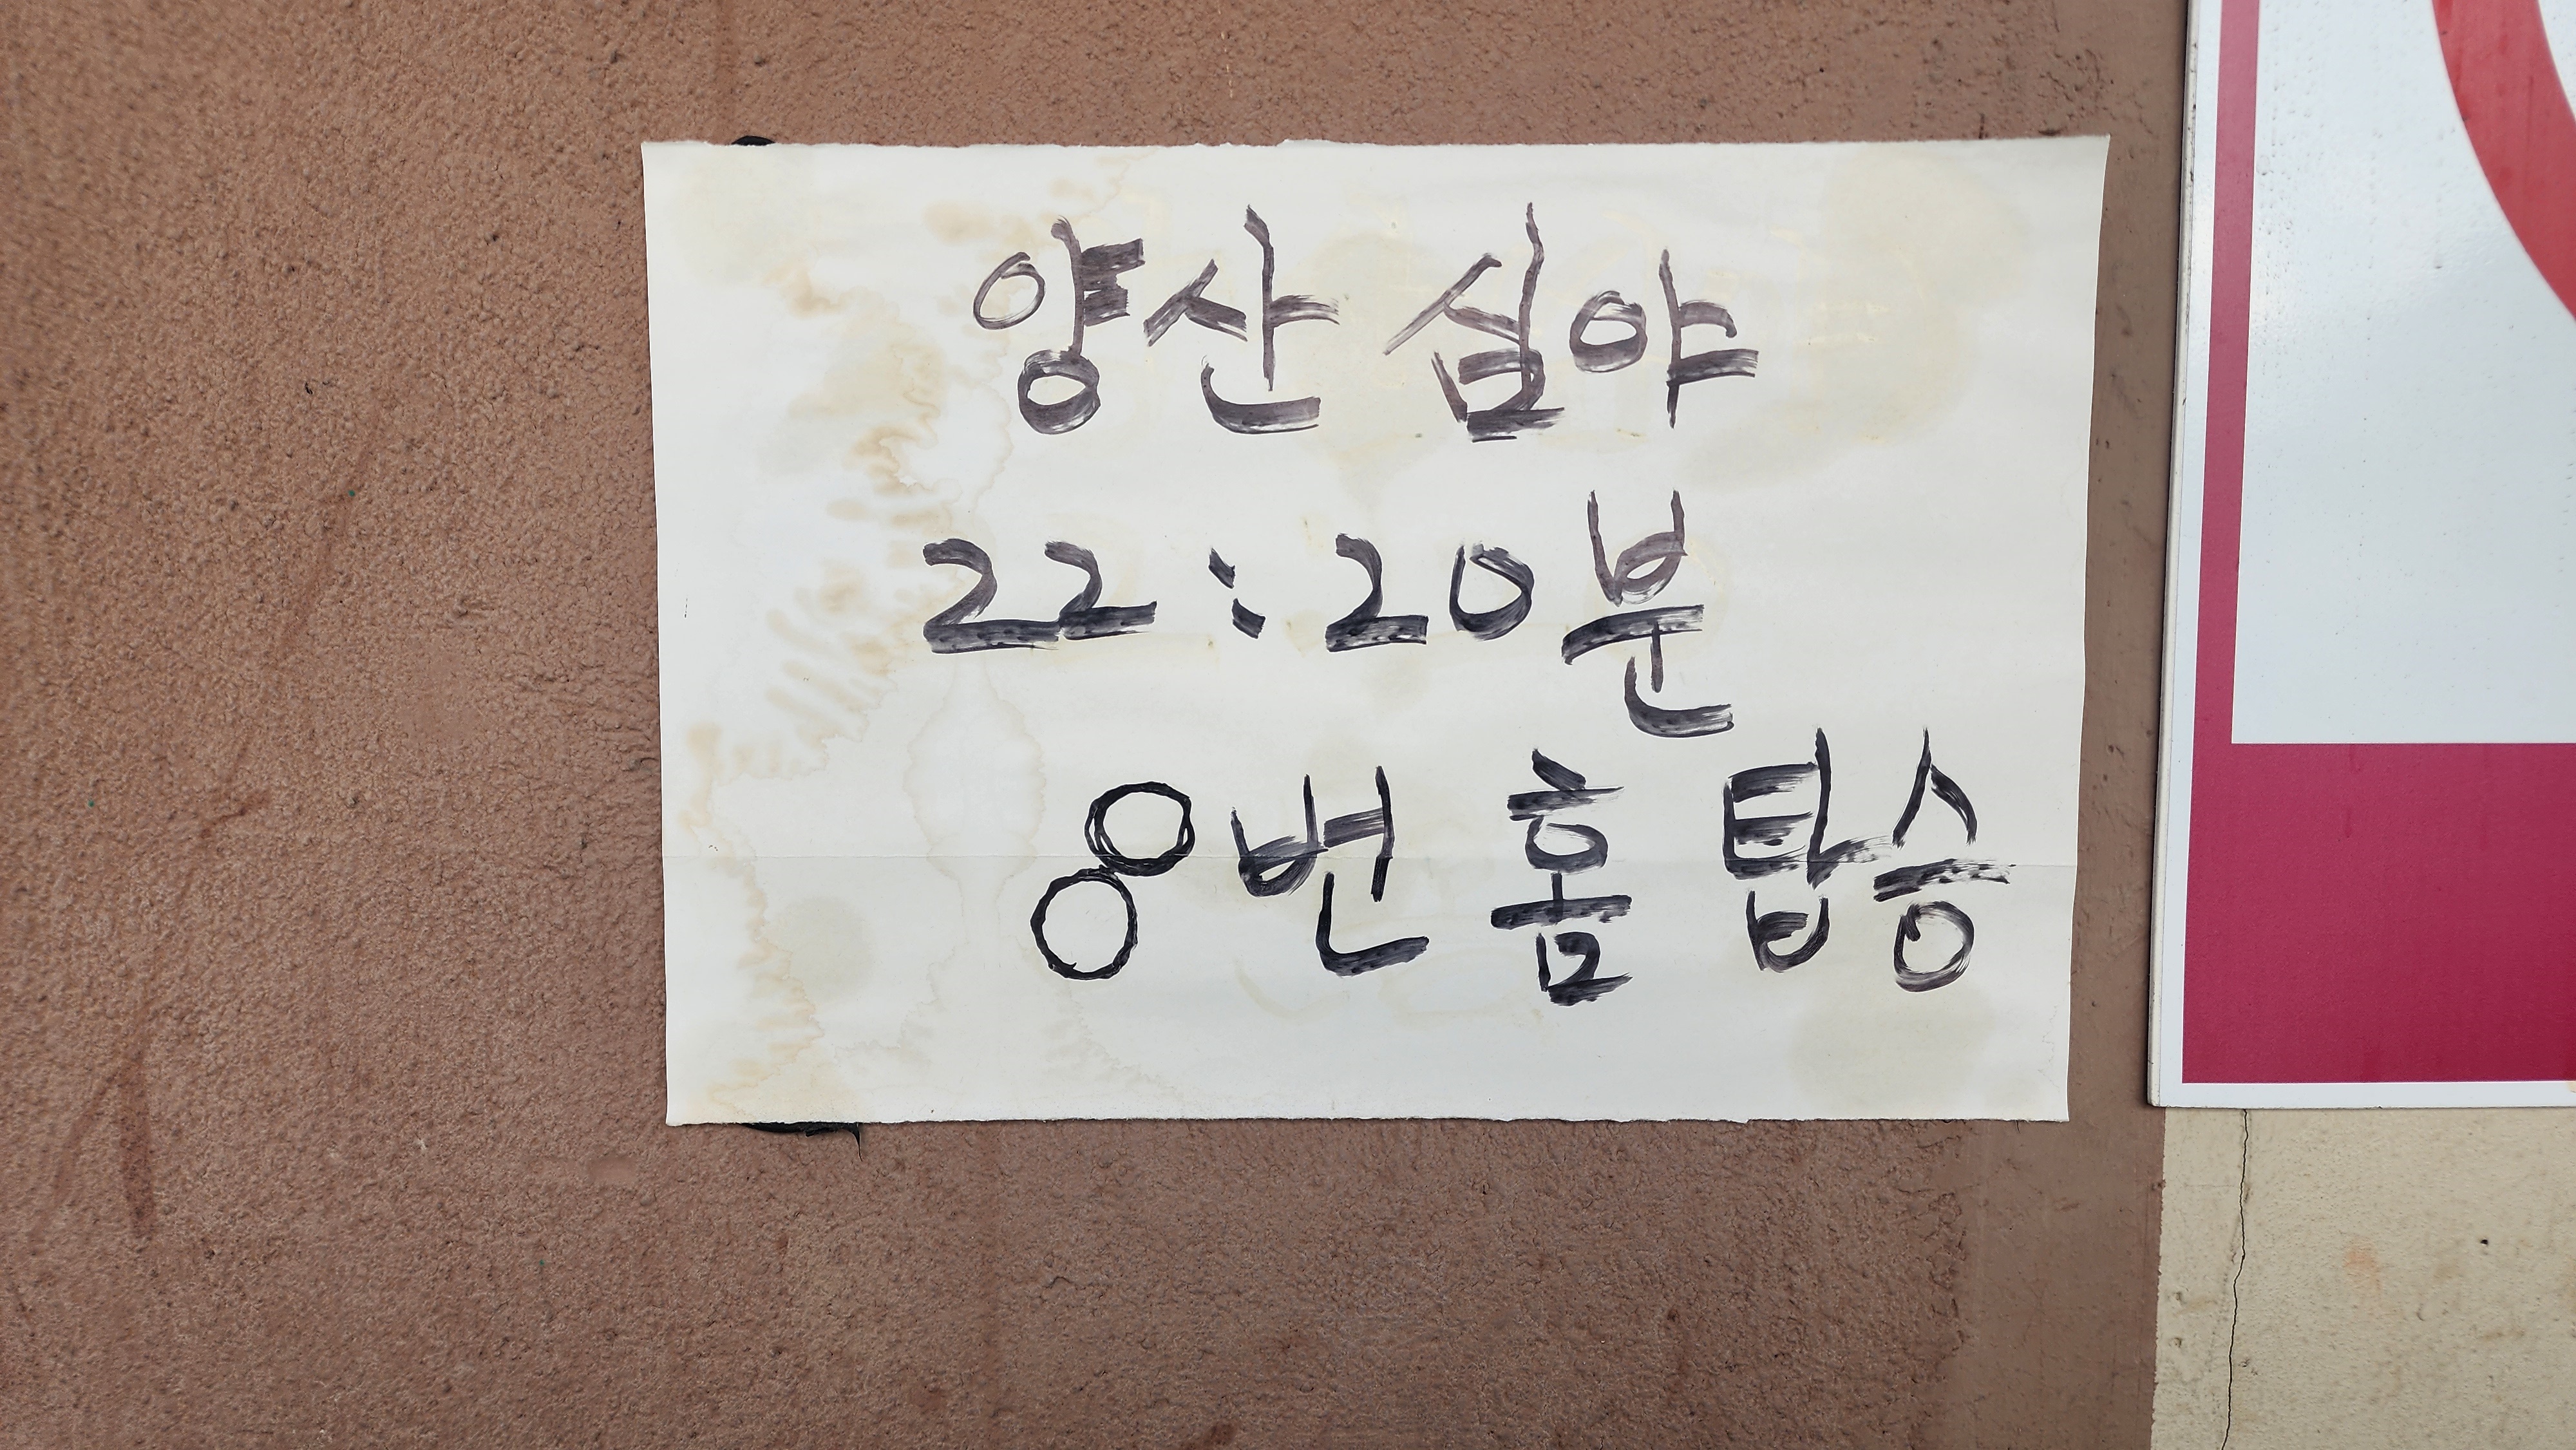 양산 심야
22:20분
8번 홈 탑승